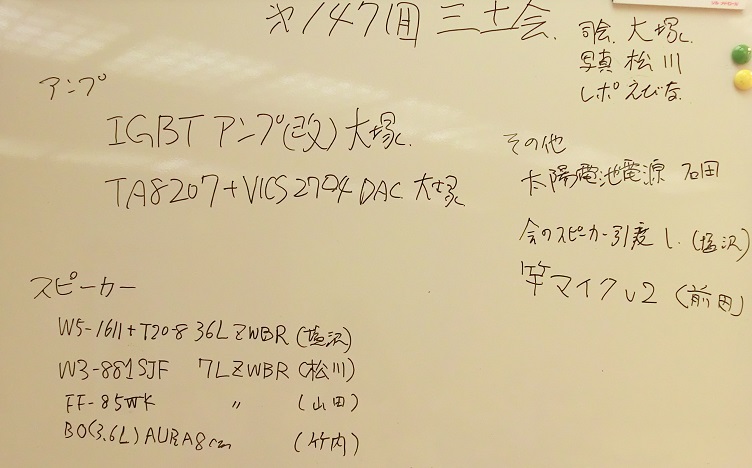 第147回 三土会
司会. 大塚c.
写真 松川
レポ えびな
アンプ
IGBT アンプ(改) 大塚c.
TA8207+VICS2704 DAC 大塚c
その他
太陽電池電源 石田
会のスピーカー引渡し. (塩沢)
竿マイクv2 (前田)
スピーカー
W5-1611+T20-8 36L ZWBR (塩沢)
W3-881SJF 7LZWBR (松川)
FF-85WK 〃 (山田)
BO(3.6L)AURA8cm (竹内)